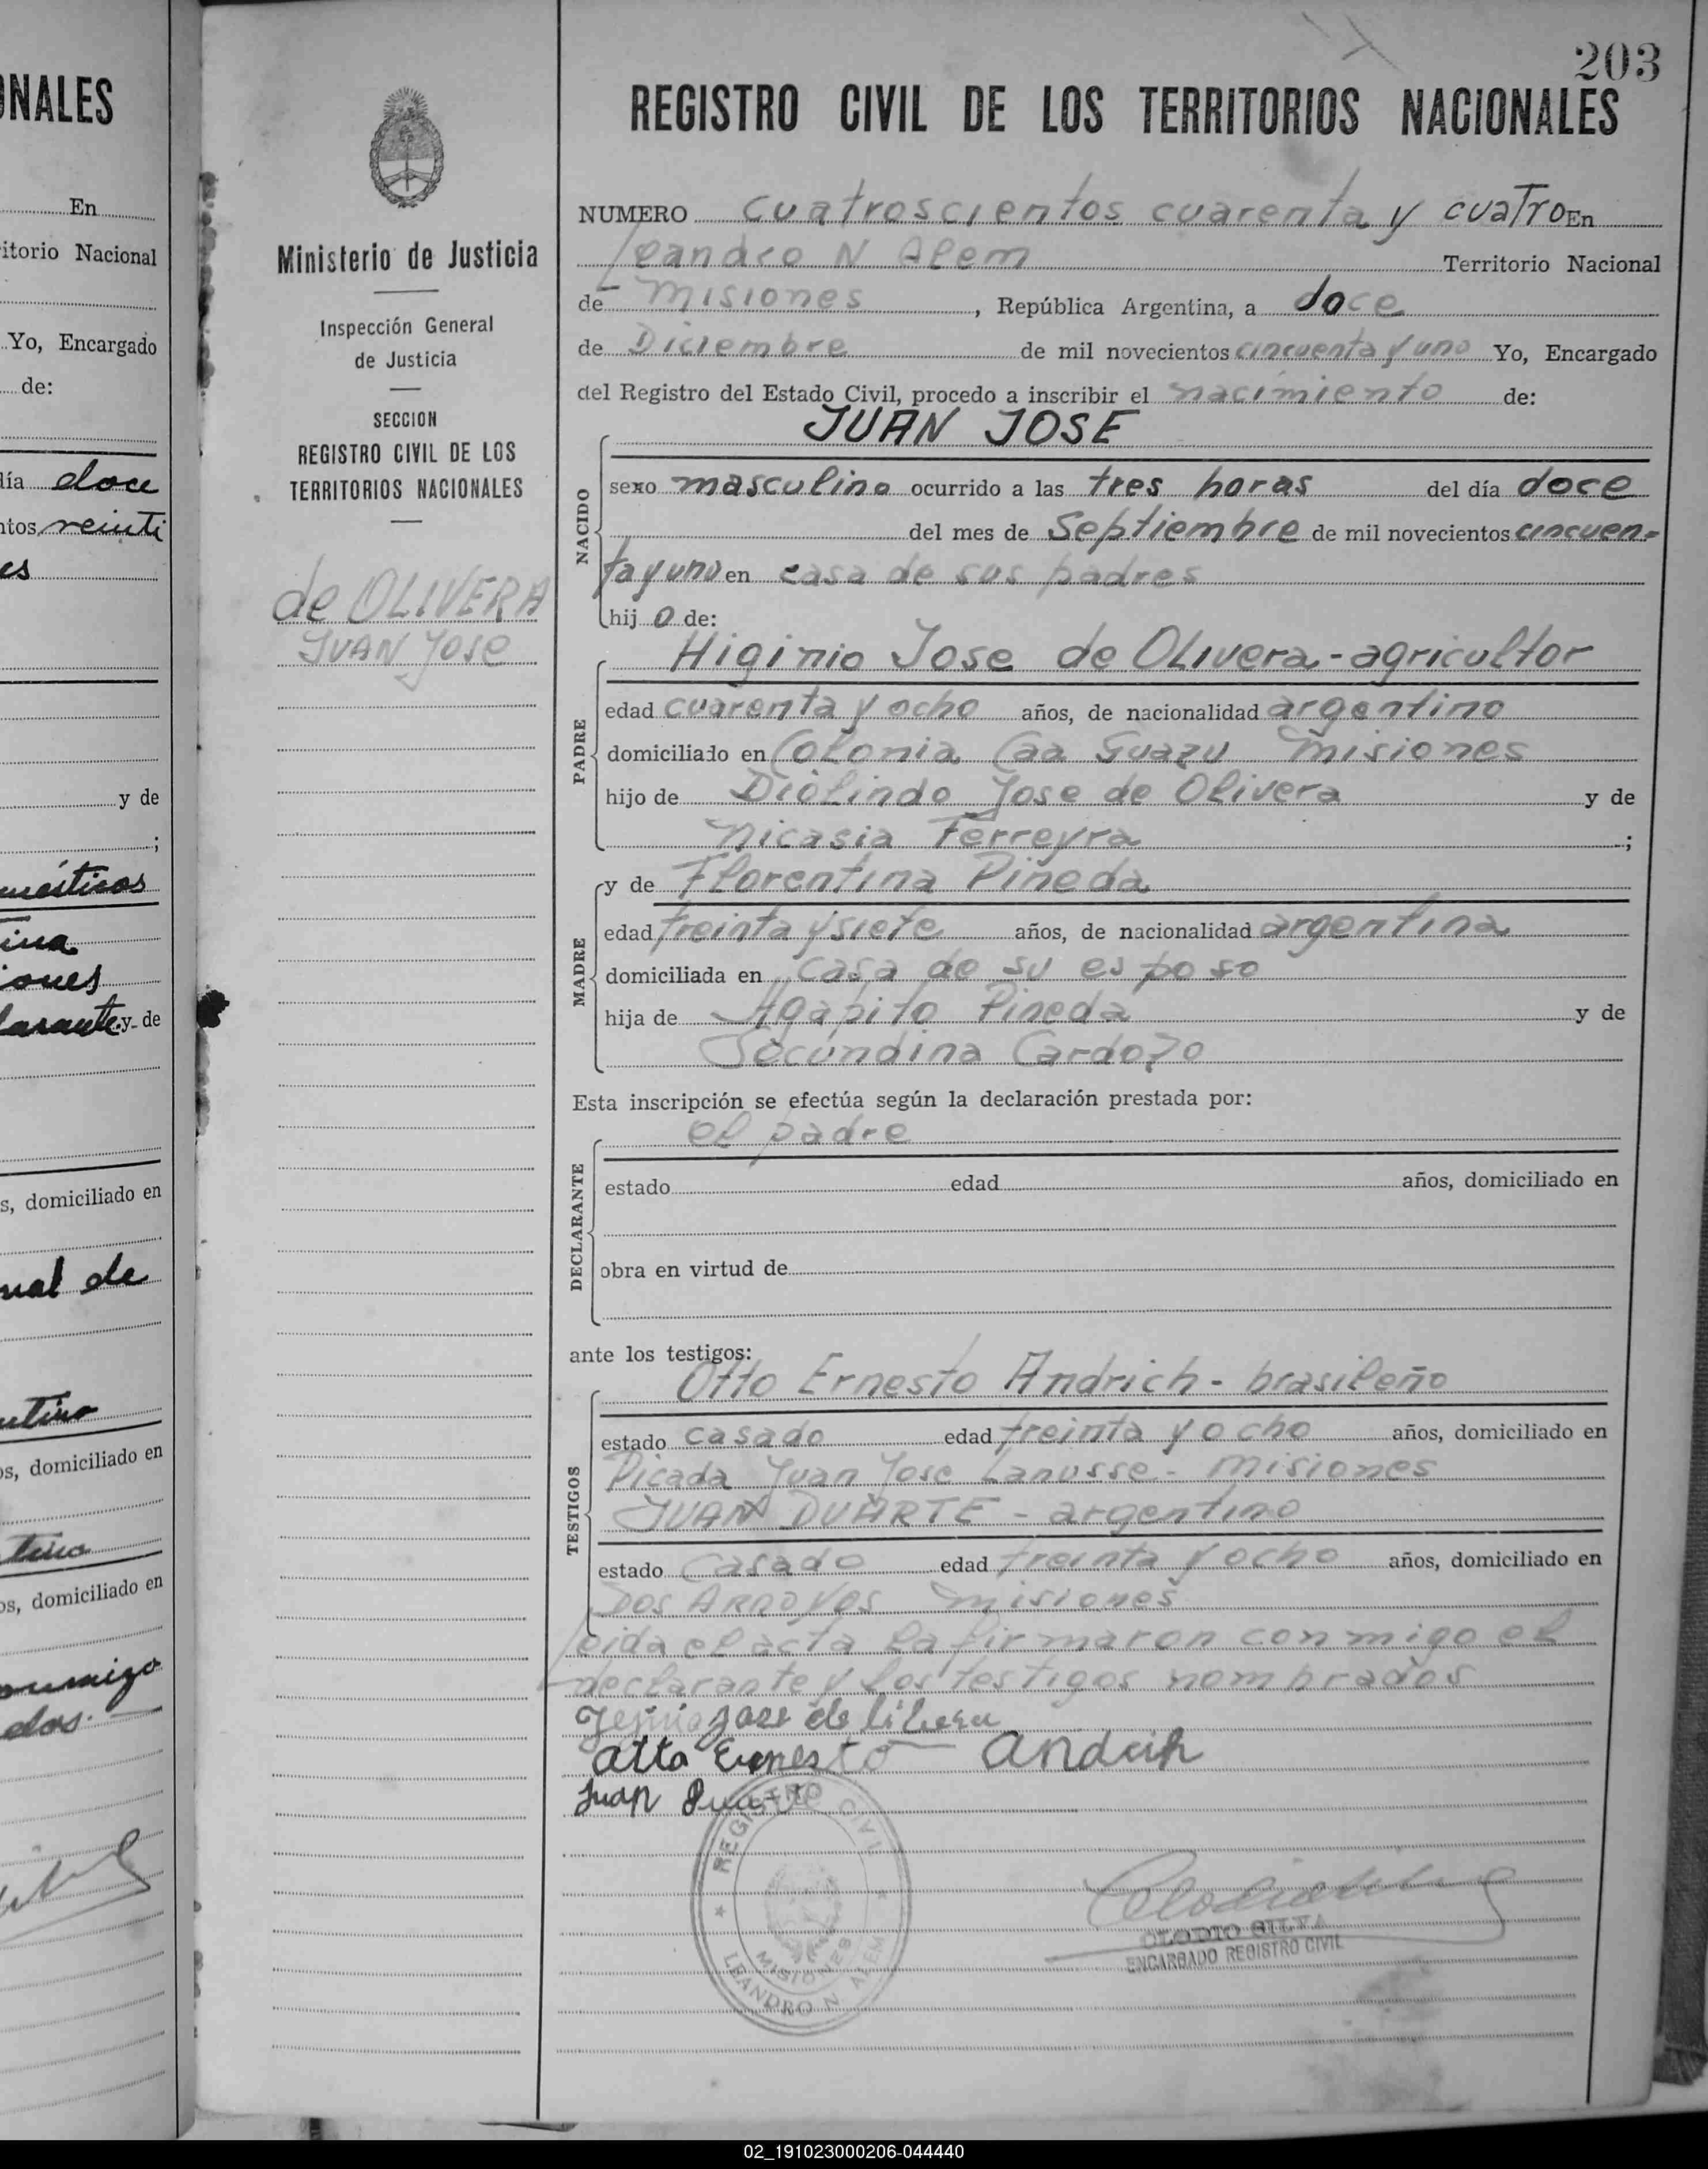 203
REGISTRO CIVIL DE LOS TERRITORIOS NACIONALES
Ministerio de Justicia
Inspección General
de Justicia
SECCION
REGISTRO CIVIL DE LOS
TERRITORIOS NACIONALES
de OLIVERA
JUAN Jose
NUMERO cuatroscientos cuarenta y cuatro En
Leandro N Alem Territorio Nacional
de Misiones, República Argentina, a doce
de Diciembre de mil novecientos cincuenta y uno Yo, Encargado
del Registro del Estado Civil, procedo a inscribir el nacimiento de:
JUAN JOSE
NACIDO
sexo masculino ocurrido a las tres horas del día doce
del mes de Septiembre de mil novecientos cincuen-
ta y uno en casa de sus padres
hij o de:
Higinio Jose de Olivera - agricultor
PADRE
edad cuarenta y ocho años, de nacionalidad argentino
domiciliado en Colonia Caa Guazu Misiones
hijo de Diolindo Jose de Olivera y de
Nicasia Ferreyra ;
y de Florentina Pineda
MADRE
edad treinta y siete años, de nacionalidad argentina
domiciliada en casa de su esposo
hija de Agapito Pineda y de
Secundina Cardozo
Esta inscripción se efectúa según la declaración prestada por:
el padre
DECLARANTE
estado edad años, domiciliado en
obra en virtud de
ante los testigos:
Otto Ernesto Andrich - brasileño
TESTIGOS
estado casado edad treinta y ocho años, domiciliado en
Picada Juan Jose Lanusse - Misiones
JUAN DUARTE - argentino
estado casado edad treinta y ocho años, domiciliado en
Dos Arroyos Misiones
Leida el acta la firmaron conmigo el
declarante y los testigos nombrados
Jose de
Otto Ernesto Andrich
Juan Duarte
REGISTRO CIVIL
MISIONES
LEANDRO N. ALEM
CLODIO SILVA
ENCARGADO REGISTRO CIVIL
ONALES
En
itorio Nacional
Yo, Encargado
de:
día doce
ntos veinti
es
y de
;
mésticos
tina
iones
larante y de
s, domiciliado en
nal de
ntino
os, domiciliado en
tino
os, domiciliado en
onmigo
dos.
02_191023000206-044440